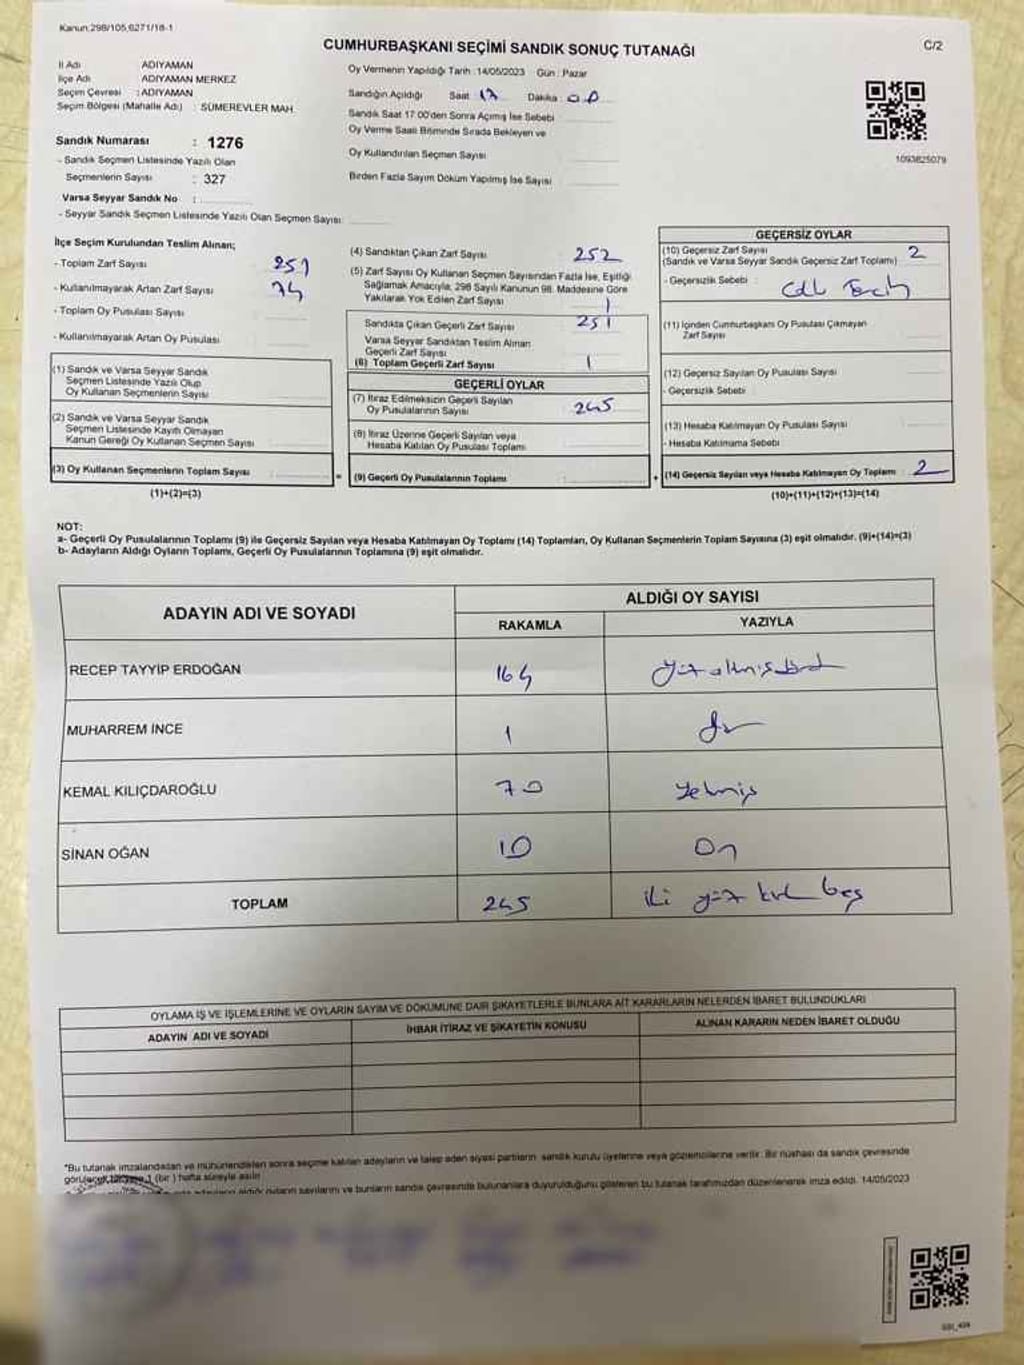 Kanun:298/105,6271/18-1
CUMHURBAŞKANI SEÇİMİ SANDIK SONUÇ TUTANAĞI
C/2
İl Adı ADIYAMAN
İlçe Adı ADIYAMAN MERKEZ
Seçim Çevresi : ADIYAMAN
Seçim Bölgesi (Mahalle Adı) : SÜMEREVLER MAH.
Sandık Numarası : 1276
- Sandık Seçmen Listesinde Yazılı Olan
Seçmenlerin Sayısı : 327
Varsa Seyyar Sandık No :
- Seyyar Sandık Seçmen Listesinde Yazılı Olan Seçmen Sayısı:
Oy Vermenin Yapıldığı Tarih :14/05/2023 Gün : Pazar
Sandığın Açıldığı Saat 17 Dakika : 00
Sandık Saat 17:00'den Sonra Açımış İse Sebebi
Oy Verme Saati Bitiminde Sırada Bekleyen ve
Oy Kullandırılan Seçmen Sayısı
Birden Fazla Sayım Döküm Yapılmış İse Sayısı
1093825079
İlçe Seçim Kurulundan Teslim Alınan;
- Toplam Zarf Sayısı
- Kullanılmayarak Artan Zarf Sayısı 74
- Toplam Oy Pusulası Sayısı
- Kullanılmayarak Artan Oy Pusulası
(1) Sandık ve Varsa Seyyar Sandık
Seçmen Listesinde Yazılı Olup
Oy Kullanan Seçmenlerin Sayısı
(2) Sandık ve Varsa Seyyar Sandık
Seçmen Listesinde Kayıtlı Olmayan
Kanun Gereği Oy Kullanan Seçmen Sayısı
(3) Oy Kullanan Seçmenlerin Toplam Sayısı =
(1)+(2)=(3)
(4) Sandıktan Çıkan Zarf Sayısı 252
(5) Zarf Sayısı Oy Kullanan Seçmen Sayısından Fazla İse, Eşitliği
Sağlamak Amacıyla, 298 Sayılı Kanunun 98. Maddesine Göre
Yakılarak Yok Edilen Zarf Sayısı 1
Sandıkta Çıkan Geçerli Zarf Sayısı 251
Varsa Seyyar Sandıktan Teslim Alınan
Geçerli Zarf Sayısı
(6) Toplam Geçerli Zarf Sayısı 1
GEÇERLİ OYLAR
(7) İtiraz Edilmeksizin Geçerli Sayılan
Oy Pusulalarının Sayısı 245
(8) İtiraz Üzerine Geçerli Sayılan veya
Hesaba Katılan Oy Pusulası Toplamı
(9) Geçerli Oy Pusulalarının Toplamı : +
GEÇERSİZ OYLAR
(10) Geçersiz Zarf Sayısı 2
(Sandık ve Varsa Seyyar Sandık Geçersiz Zarf Toplamı)
- Geçersizlik Sebebi :
(11) İçinden Cumhurbaşkanı Oy Pusulası Çıkmayan
Zarf Sayısı
(12) Geçersiz Sayılan Oy Pusulası Sayısı
- Geçersizlik Sebebi
(13) Hesaba Katılmayan Oy Pusulası Sayısı
- Hesaba Katılmama Sebebi
(14) Geçersiz Sayılan veya Hesaba Katılmayan Oy Toplamı : 2
(10)+(11)+(12)+(13)=(14)
NOT:
a- Geçerli Oy Pusulalarının Toplamı (9) ile Geçersiz Sayılan veya Hesaba Katılmayan Oy Toplamı (14) Toplamları, Oy Kullanan Seçmenlerin Toplam Sayısına (3) eşit olmalıdır. (9)+(14)=(3)
b- Adayların Aldığı Oyların Toplamı, Geçerli Oy Pusulalarının Toplamına (9) eşit olmalıdır.
ADAYIN ADI VE SOYADI
ALDIĞI OY SAYISI
RAKAMLA YAZIYLA
RECEP TAYYİP ERDOĞAN 164 yüzaltmışdört
MUHARREM İNCE 1 bir
KEMAL KILIÇDAROĞLU 70 yetmiş
SİNAN OĞAN 10 On
TOPLAM 245 iki yüz kırk beş
OYLAMA İŞ VE İŞLEMLERİNE VE OYLARIN SAYIM VE DÖKÜMÜNE DAİR ŞİKAYETLERLE BUNLARA AİT KARARLARIN NELERDEN İBARET BULUNDUKLARI
ADAYIN ADI VE SOYADI İHBAR İTİRAZ VE ŞİKAYETİN KONUSU ALINAN KARARIN NEDEN İBARET OLDUĞU
"Bu tutanak imzalandıktan ve mühürlendikten sonra seçime katılan adayların ve talep eden siyasi partilerin sandık kurulu üyelerine veya gözlemcilerine verilir. Bir nüshası da sandık çevresinde
görülecek bir yere 1 (bir ) hafta süreyle asılır
aldığı oyların sayılarını ve bunların sandık çevresinde bulunanlara duyurulduğunu gösteren bu tutanak tarafımızdan düzenlenerek imza edildi. 14/05/2023